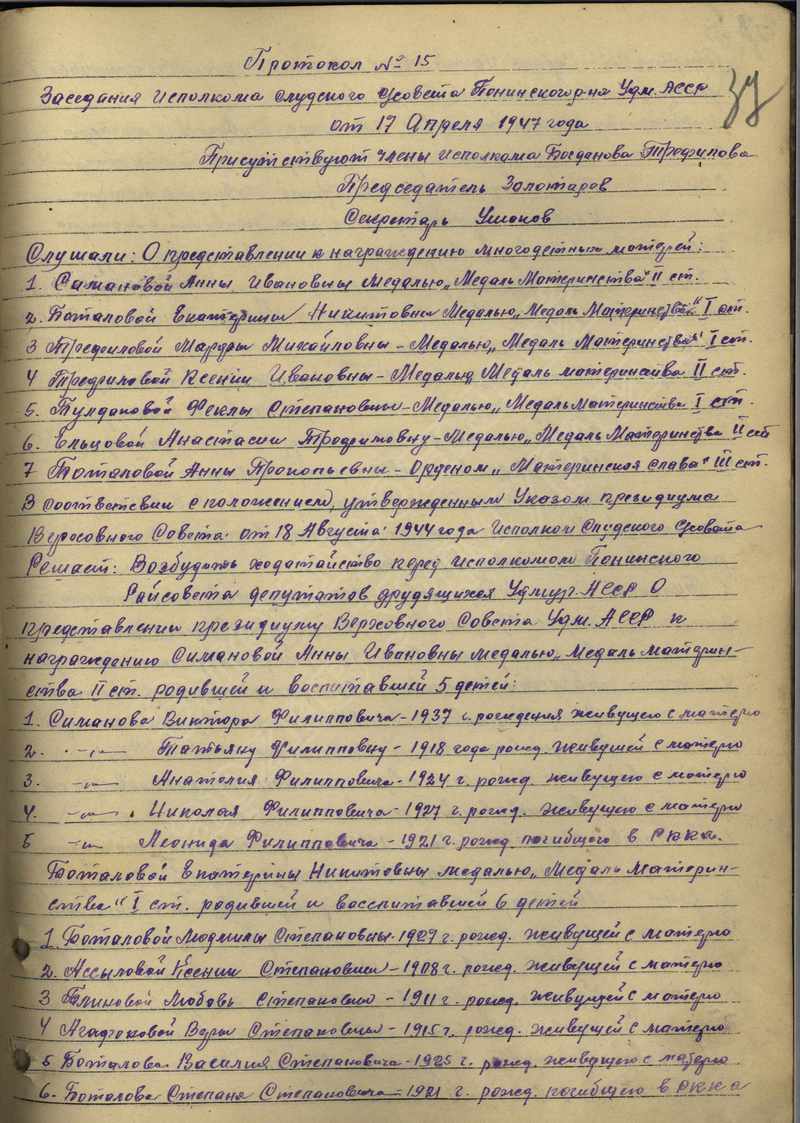 Протокол № 15
37
Заседания исполкома Слудского с/совета Понинского р-на Удм. АССР
от 17 Апреля 1947 года
Присутствуют члены исполкома Богданова Трефилова
Председатель Золотарев
Секретарь Ушаков
Слушали: О представлении к награждению многодетных матерей:
1. Симановой Анны Ивановны Медалью „Медаль Материнства" II ст.
2. Боталовой Екатерины Никитовны Медалью „Медаль Материнства" I ст.
3 Трефиловой Марфы Михайловны – Медалью „Медаль Материнства" I ст.
4 Трефиловой Ксении Ивановны – Медалью Медаль материнства II ст.
5. Тулдановой Феклы Степановны – Медалью „Медаль Материнства I ст.
6. Ельцовой Анастасии Трофимовну – Медалью „Медаль Материнства II ст
7 Боталовой Анны Прокопьевны – Орденом „Материнская слава" III ст.
В соответствии с положением, утвержденным Указом президиума
Верховного Совета от 18 Августа 1944 года Исполком Слудского с/совета
Решает: Возбудить ходатайство перед исполкомом Понинского
Райсовета депутатов трудящихся Удмур. АССР О
представлении президиуму Верховного Совета Удм. АССР к
награждению Симановой Анны Ивановны медалью „Медаль материн-
ства II ст. родившей и воспитавшей 5 детей:
1. Симанова Виктора Филипповича – 1937 г. рождения живущего с матерью
2. –„– Татьяну Филипповну – 1918 года рожд. живущей с матерью
3. –„– Анатолия Филипповича – 1924 г. рожд. живущего с матерью
4. –„– Николая Филипповича – 1927 г. рожд. живущего с матерью
5 –„– Леонида Филипповича – 1921 г. рожд погибшего в РККА.
Боталовой Екатерины Никитовны медалью „Медаль Материн-
ства" I ст. родившей и восспитавшей 6 детей
1. Боталовой Людмилы Степановны – 1927 г. рожд. живущей с матерью
2. Ассыловой Ксении Степановны – 1908 г. рожд. живущей с матерью
3 Блиновой Любовь Степановны – 1911 г. рожд. живущей с матерью
4 Агафоновой Веры Степановны – 1915 г. рожд. живущей с матерью
5 Боталова Василия Степановича – 1925 г. рожд. живущего с матерью
6. Боталова Степана Степановича – 1921 г. рожд. погибшего в РККА